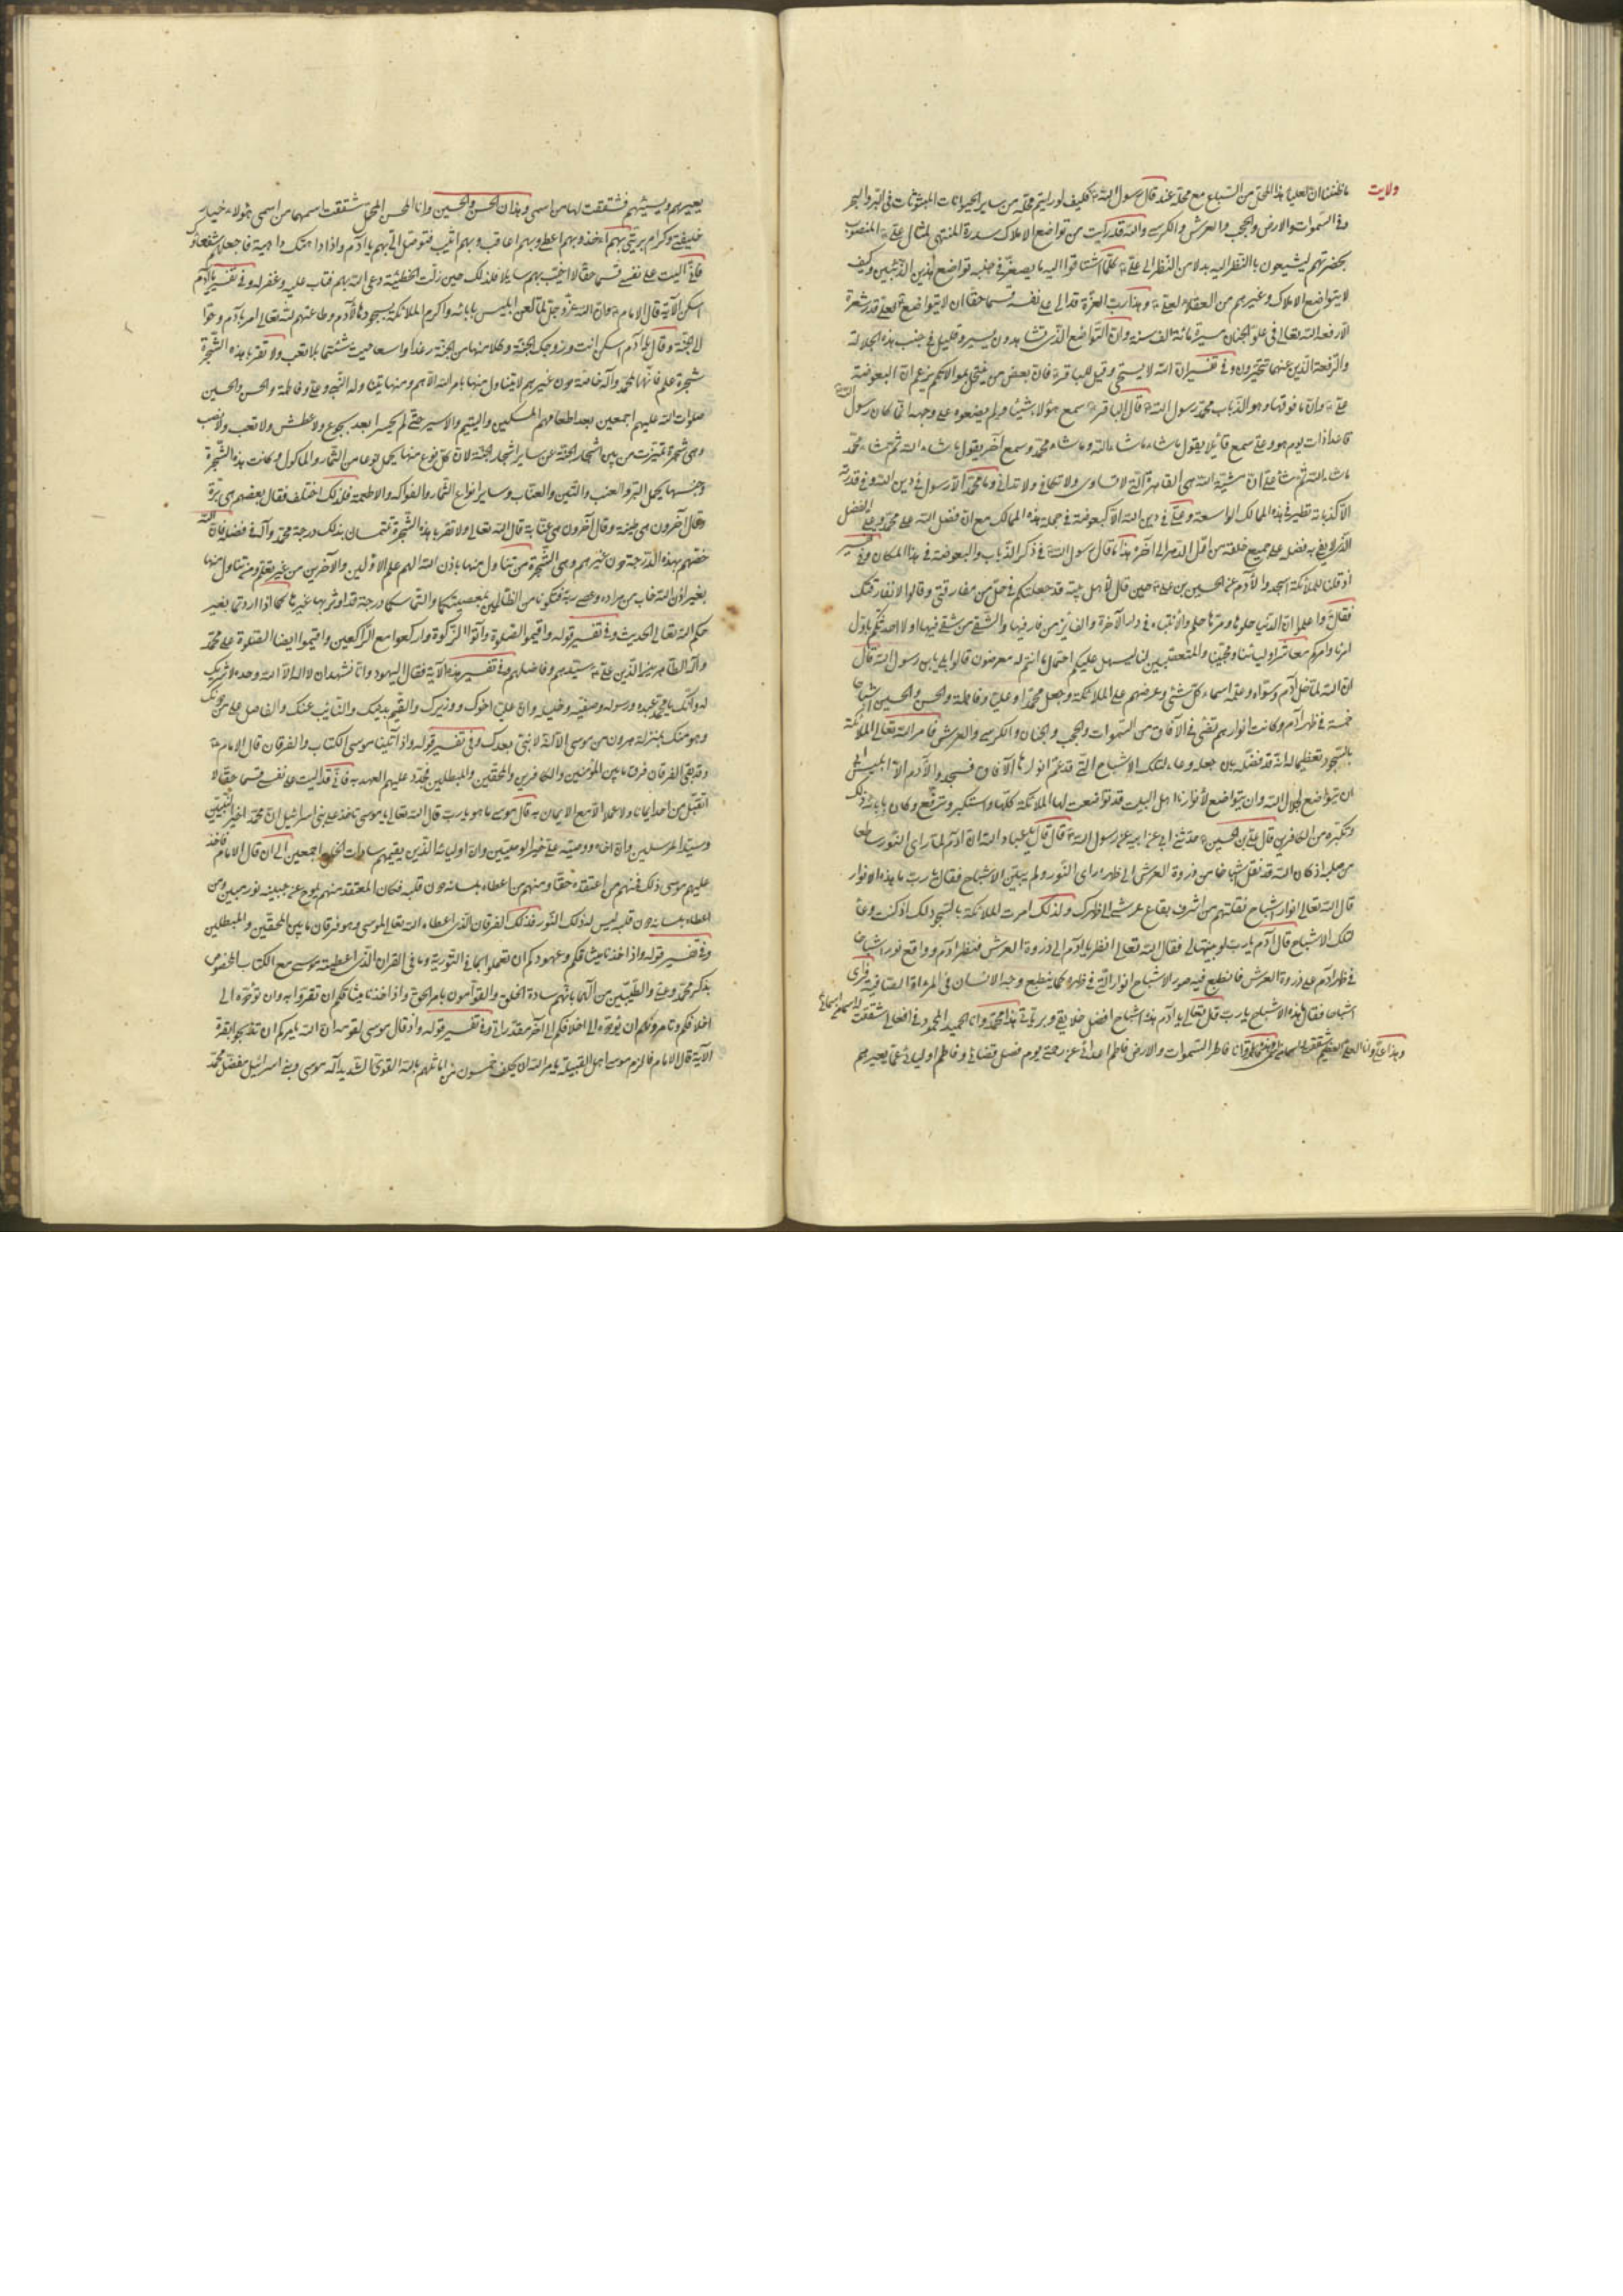 ولايت
ما ظننا ان لعلي هذا المحل من السباع مع محله عندك قال رسول الله فكيف لو رايتم محله من ساير الحيوانات المبثوثات في البر والبحر
وفي السموات والارض والحجب والعرش والكرسي والله قد رايت من تواضع الاملاك سدرة المنتهى لمثال علي المنصوب
بحضرتهم ليشيعون بالنظر اليه بدلا من النظر الى علي كلما اشتاقوا اليه ما يصغر في جنبه تواضع هذين الذئبين وكيف
لا يتواضع الاملاك وغيرهم من العقلاء لعلي وهذا رب العزة قد الى على نفسه قسما حقا ان لا يتواضع احد لعلي قدر شعرة
الا رفعه الله تعالى في علو الجنان مسيرة مائة الف سنة وان التواضع الذي تشاهدون يسير قليل في جنب هذه الجلالة
والرفعة الذين عنهما تخبرون وفي تفسير ان الله لا يستحيي وقيل للباقر فان بعض من ينتحل موالاتكم يزعم ان البعوضة
علي وان ما فوقها وهو الذباب محمد رسول الله قال الباقر سمع هؤلاء شيئا ولم يضعوه على وجهه انما كان رسول
قاعدا ذات يوم هو وعلي سمع قائلا يقول ما شاء الله وما شاء محمد وسمع آخر يقول ما شاء الله ثم شاء محمد
ما شاء الله ثم شاء علي ان مشية الله هي القاهرة التي لا تساوى ولا تكافى ولا تدانى وما محمد الا رسول في دين الله وفي قدرته
الا كذبابة تطير في هذه الممالك الواسعة وما علي في دين الله الا كبعوضة في جملة هذه الممالك مع ان فضل الله على محمد وعلي الفضل
الذي لا يفي به فضله على جميع خلقه من اول الدهر الى آخره هذا ما قال رسول الله في ذكر الذباب والبعوضة في هذا المكان وفي تفسير
اذ قلنا للملائكة اسجدوا لآدم عن الحسين بن علي حين قال لاهل بيته قد جعلتكم في حل من مفارقتي وقالوا لا نفارقك
فقال واعلموا ان الدنيا حلوها ومرها حلم والانتباه في دار الآخرة والفائز من فاز فيها والشقي من شقي فيها اولا احدثكم باول
امرنا وامركم معاشر اوليائنا ومحبينا والمتعصبين لنا ليسهل عليكم احتمال ما انتم له معرضون قالوا بلى يا بن رسول الله قال
ان الله لما خلق آدم وسواه وعلمه اسماء كل شيء وعرضهم على الملائكة وجعل محمدا وعليا وفاطمة والحسن والحسين اشباحا
خمسة في ظهر آدم وكانت انوارهم تضيء في الآفاق من السموات والحجب والجنان والكرسي والعرش فامر الله تعالى الملائكة
بالسجود تعظيما له انه قد فضله بان جعله وعاء لتلك الاشباح التي قد عم انوارها الآفاق فسجدوا لآدم الا ابليس ابى
ان يتواضع لجلال الله وان يتواضع لانوارنا اهل البيت قد تواضعت لها الملائكة كلها واستكبر وترفع وكان بابائه ذلك
وتكبره من الكافرين قال علي بن الحسين حدثني ابي عن ابيه عن رسول الله قال قال يا عباد الله ان آدم لما راى النور ساطعا
من صلبه اذ كان الله قد نقل اشباحنا من ذروة العرش الى ظهره راى النور ولم يتبين الاشباح فقال يا رب ما هذه الانوار
قال الله تعالى انوار اشباح نقلتهم من اشرف بقاع عرشي الى ظهرك ولذلك امرت الملائكة بالسجود لك اذ كنت وعاء
لتلك الاشباح قال آدم يا رب لو بينتها لي فقال الله تعالى انظر يا آدم الى ذروة العرش فنظر آدم وواقع نور اشباحنا
في ظهر آدم على ذروة العرش فانطبع فيه صور الاشباح انوار التي في ظهره كما ينطبع وجه الانسان في المرآة الصافية فراى
اشباحنا فقال ما هذه الاشباح يا رب قال تعالى يا آدم هذه اشباح افضل خلايقي وبرياتي هذا محمد وانا الحميد المحمود في افعالي شققت له اسما من اسمائي
وهذا علي وانا العلي العظيم شققت له اسما من اسمي وهذه فاطمة وانا فاطر السموات والارض فاطم اعدائي عن رحمتي يوم فصل قضائي وفاطم اوليائي عما يعيرهم
يعيرهم ويشينهم فشققت لها من اسمي وهذان الحسن والحسين وانا المحسن المجمل شققت اسمهما من اسمي هؤلاء خيار
خليقتي وكرام بريتي بهم آخذ وبهم اعطي وبهم اعاقب وبهم اثيب فتوسل الي بهم يا آدم واذا دهتك داهية فاجعلهم شفعاؤك
فاني آليت على نفسي قسما حقا لا اخيب بهم سايلا فلذلك حين زلت الخطيئة دعى الله بهم فتاب عليه وغفر له وفي تفسير يا آدم
اسكن الآية قال الامام وان الله عز وجل لما لعن ابليس بابائه واكرم الملائكة بسجودها لآدم وطاعتهم لله تعالى امر يآدم وحوا
الى الجنة وقال يا آدم اسكن انت وزوجك الجنة وكلا منها من الجنة رغدا واسعا حيث شئتما بلا تعب ولا تقربا هذه الشجرة
شجرة علم فانها لمحمد وآله خاصة دون غيرهم لا يتناول منها بامر الله الا هم ومنها يتناوله النبي وعلي وفاطمة والحسن والحسين
صلوات الله عليهم اجمعين بعد اطعامهم المسكين واليتيم والاسير حتى لم يحسوا بعد بجوع ولا عطش ولا تعب ولا نصب
وهي شجرة تميزت من بين اشجار الجنة عن ساير اشجار الجنة لان كل نوع منها يحمل نوعا من الثمار والماكول وكانت هذه الشجرة
وجنسها يحمل البر والعنب والتين والعناب وساير انواع الثمار والفواكه والاطعمة فلذلك اختلف فقال بعضهم هي برة
وقال آخرون هي تينة وقال آخرون هي عنابة قال الله تعالى ولا تقربا هذه الشجرة تلتمسان بذلك درجة محمد وآله في فضلهم فان الله
خصهم بهذه الدرجة دون غيرهم وهي الشجرة من تناول منها باذن الله الهم علم الاولين والآخرين من غير تعلم ومن تناول منها
بغير اذن الله خاب من مراده وعصى ربه فتكونا من الظالمين بمعصيتكما والتماسكما درجة قد اوثر بها غيركما اذا اردتما بغير
حكم الله تعالى الحديث وفي تفسير قوله واقيموا الصلوة وآتوا الزكوة واركعوا مع الراكعين واقيموا ايضا الصلوة على محمد
وآله الطاهرين الذين علي سيدهم وفاضلهم وفي تفسير هذه الآية فقال اليهود وانا نشهد ان لا اله الا الله وحده لا شريك
له وانك يا محمد عبده ورسوله وصفيه وخليله وان علي اخوك ووزيرك والقيم بدينك والنايب عنك والفاضل على من دونك
وهو منك بمنزلة هرون من موسى الا انه لا نبي بعدك وفي تفسير قوله واذ آتينا موسى الكتاب والفرقان قال الامام
وقد بقي الفرقان فرق ما بين المؤمنين والكافرين والمحقين والمبطلين فجدد عليهم العهد به فاني قد آليت على نفسي قسما حقا لا
اتقبل من احد ايمانا ولا عملا الا مع الايمان به قال موسى ما هو يا رب قال الله تعالى يا موسى تاخذ على بني اسرائيل ان محمد خير النبيين
وسيد المرسلين وان اخاه ووصيه علي خير الوصيين وان اوليائه الذين يقيمهم سادات الخلق اجمعين الى ان قال الامام فاخذ
عليهم موسى ذلك فمنهم من اعتقده حقا ومنهم من اعطاه بلسانه دون قلبه فكان المعتقد منهم يلوح على جبينه نور مبين ومن
اعطاه بلسانه دون قلبه ليس له ذلك النور فذلك الفرقان الذي اعطاه الله تعالى لموسى وهو فرقان ما بين المحقين والمبطلين
وفي تفسير قوله واذ اخذنا ميثاقكم وعهودكم ان تعملوا بما في التورية وما في القرآن الذي اعطيته موسى مع الكتاب المخصوص
بذكر محمد وعلي والطيبين من آلهما بانهم سادة الخلق والقوامون بامر الحق واذ اخذنا ميثاقكم ان تقروا به وان تؤدوه الى
اخلافكم وتامروهم ان يؤدوه الى اخلافهم الى آخر مقدراتي وفي تفسير قوله واذ قال موسى لقومه ان الله يامركم ان تذبحوا بقرة
الآية قال الامام فالزم موسى اهل القبيلة بامر الله ان يحلف خمسون من اماثلهم بالله القوي الشديد اله موسى وبني اسرائيل مفضل محمد